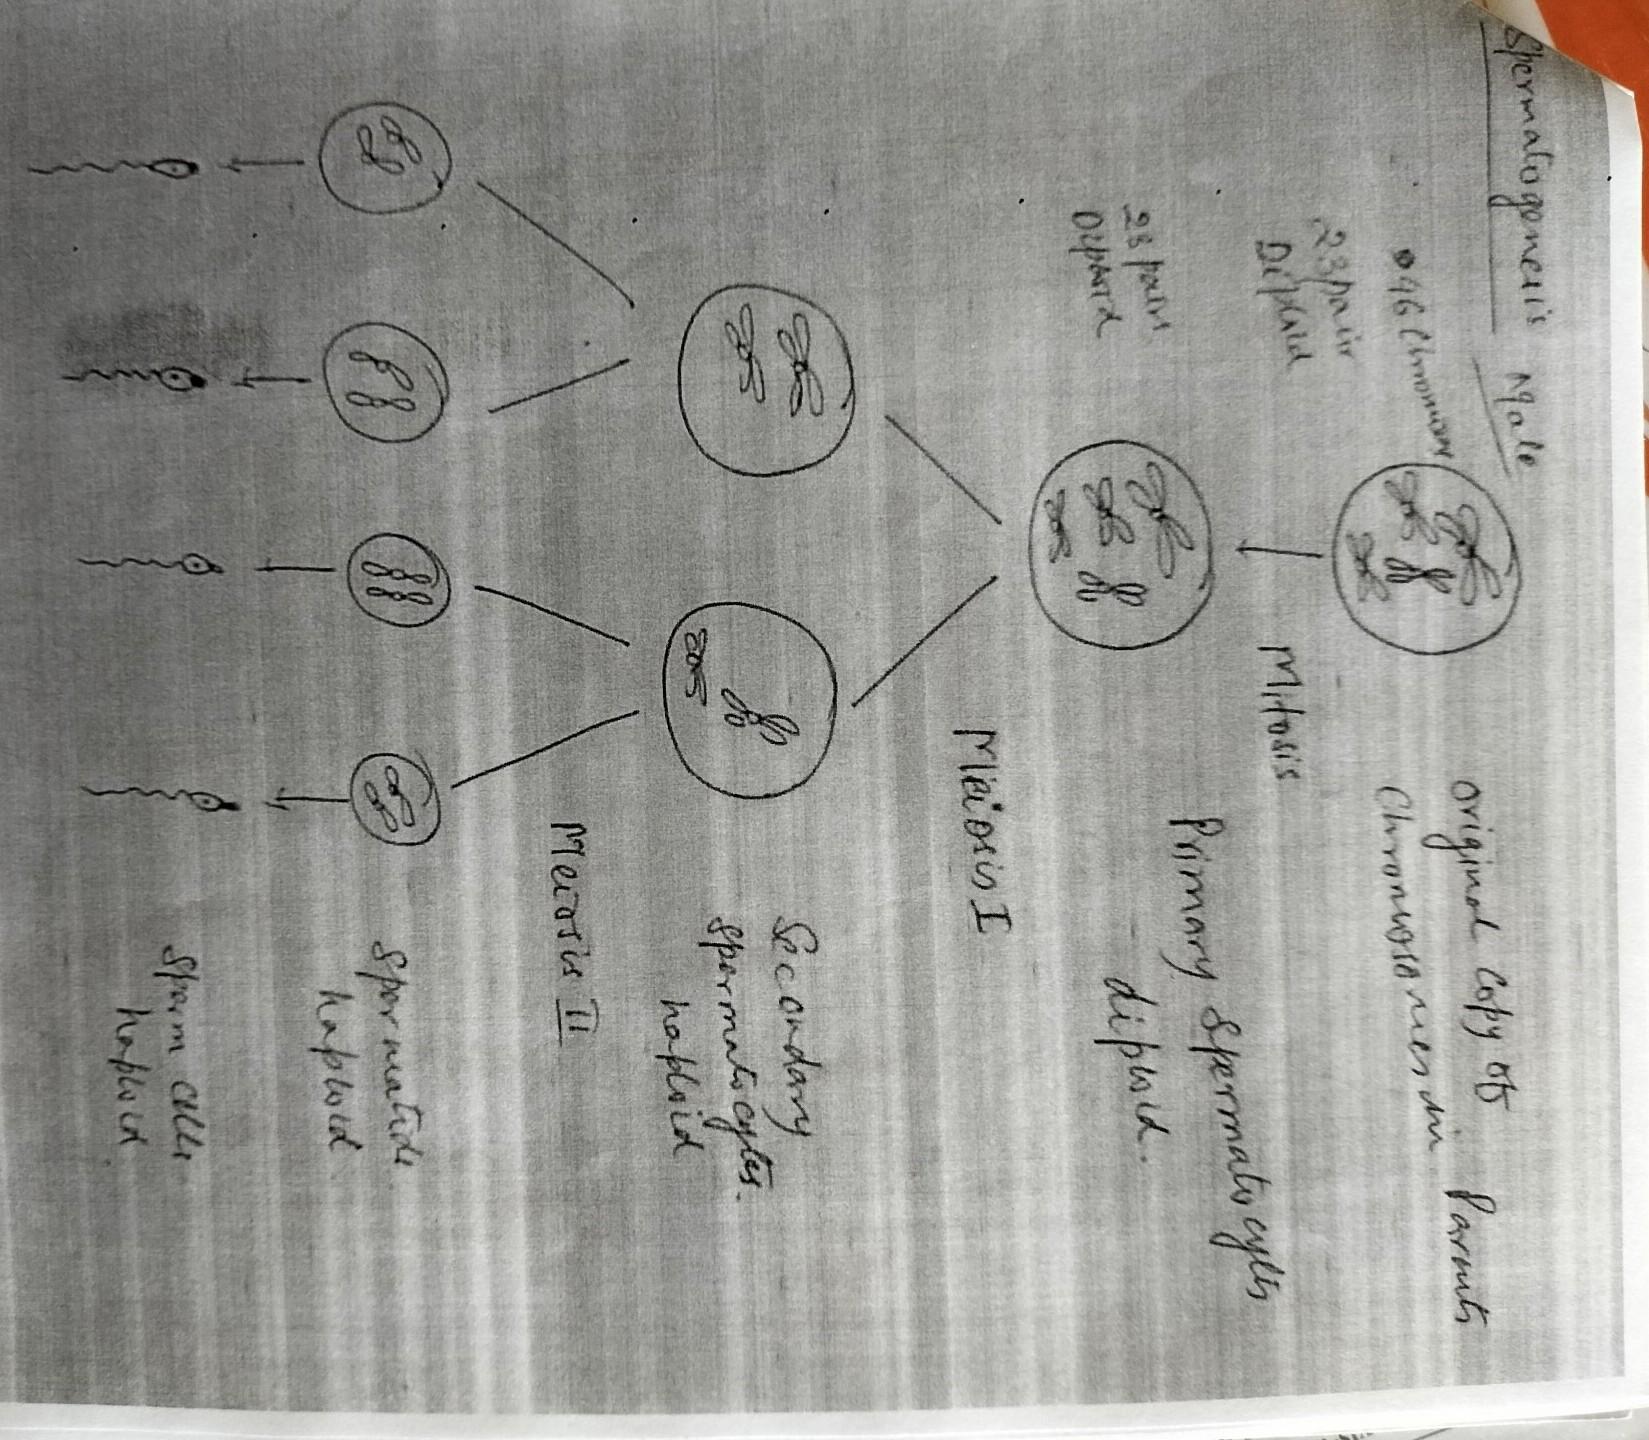 Spermatogenesis Male
46 Chromosome
23 pair
Diploid
Original Copy of
Chromosomes in Parents
Mitosis
23 pairs
Diploid
Primary Spermatocytes
diploid.
Meiosis I
Secondary
Spermatocytes.
haploid
Meiosis II
Spermatids.
haploid
Sperm Cells
haploid